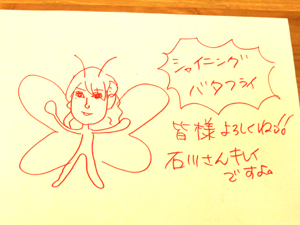 シャイニング
バタフライ
皆様よろしくね!!
石川さんキレイ
ですよ